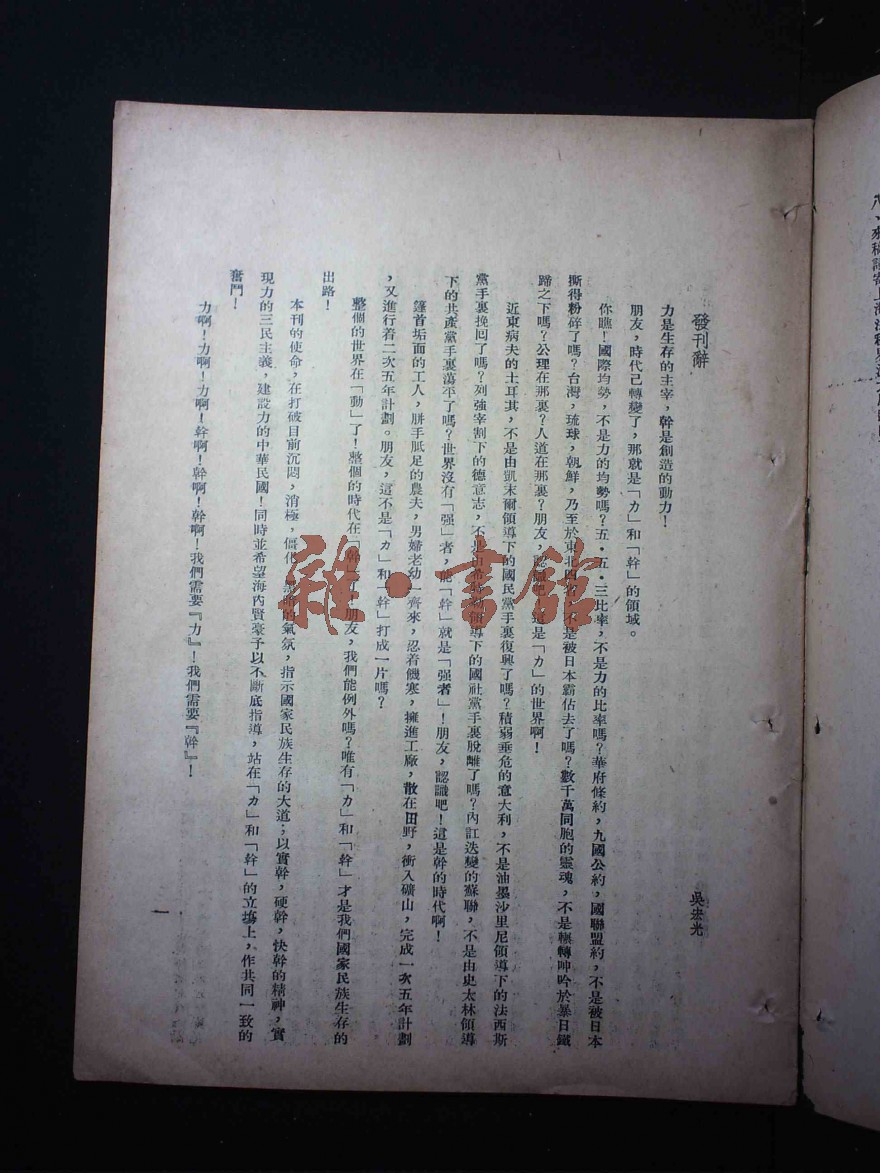 發刊辭
吳宏光
力是生存的主宰,幹是創造的動力!
朋友,時代已轉變了,那就是「力」和「幹」的領域。
你瞧!國際均勢,不是力的均勢嗎?五·五·三比率,不是力的比率嗎?華府條約,九國公約,國聯盟約,不是被日本
撕得粉碎了嗎?台灣,琉球,朝鮮,乃至於東北四省,不是被日本霸佔去了嗎?數千萬同胞的靈魂,不是輾轉呻吟於暴日鐵
蹄之下嗎?公理在那裏?人道在那裏?朋友,認識吧!這是「力」的世界啊!
近東病夫的土耳其,不是由凱末爾領導下的國民黨手裏復興了嗎?積弱垂危的意大利,不是油墨沙里尼領導下的法西斯
黨手裏挽回了嗎?列強宰割下的德意志,不是由希特勒領導下的國社黨手裏脫離了嗎?內訌迭變的蘇聯,不是由史太林領導
下的共產黨手裏蕩平了嗎?世界沒有「强」者,能「幹」就是「强者」!朋友,認識吧!這是幹的時代啊!
篷首垢面的工人,胼手胝足的農夫,男婦老幼一齊來,忍着饑寒,擁進工廠,散在田野,衝入礦山,完成一次五年計劃
,又進行着二次五年計劃。朋友,這不是「力」和「幹」打成一片嗎?
整個的世界在「動」了!整個的時代在「幹」了!朋友,我們能例外嗎?唯有「力」和「幹」才是我們國家民族生存的
出路!
本刊的使命,在打破目前沉悶,消極,僵化,黑暗的氣氛,指示國家民族生存的大道;以實幹,硬幹,快幹的精神,實
現力的三民主義,建設力的中華民國!同時並希望海內賢豪予以不斷底指導,站在「力」和「幹」的立塲上,作共同一致的
奮鬥!
力啊!力啊!力啊!幹啊!幹啊!幹啊!我們需要『力』!我們需要『幹』!
一
雜·書館